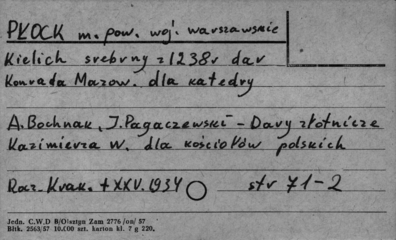 PŁOCK m. pow. woj. warszawskie
Kielich srebrny z 1238r dar
Konrada Mazow. dla katedry
A. Bochnak, J. Pagaczewski - Dary złotnicze
Kazimierza W. dla kościołów polskich
Roz. Krak. t XXV. 1934 str 71-2
Jedn. C.W.D B/Olsztyn Zam 2776 /on/ 57
Bltk. 2563/57 10.000 szt. karton kl. 7 g 220.